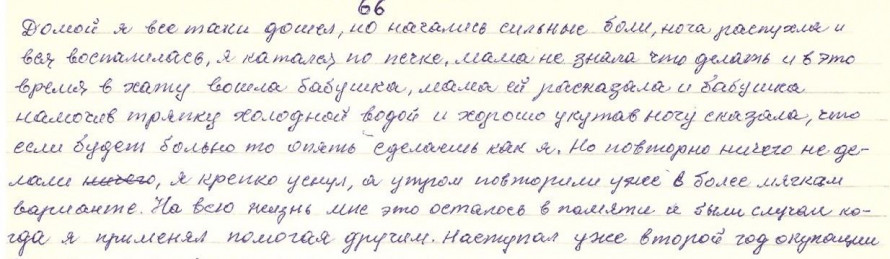 66
Домой я все таки дошел, но начались сильные боли, нога распухла и
вся воспалилась, я катался по печке, мама не знала что делать и в это
время в хату вошла бабушка, мама ей расказала и бабушка
намочив тряпку холодной водой и хорошо укутав ногу сказала, что
если будет больно то опять сделаешь как я. Но повторно ничего не де-
лали ничего, я крепко уснул, а утром повторили уже в более мягкам
варианте. На всю жизнь мне это осталось в памяти и были случаи ко-
гда я применял помогая другим. Наступал уже второй год окупации